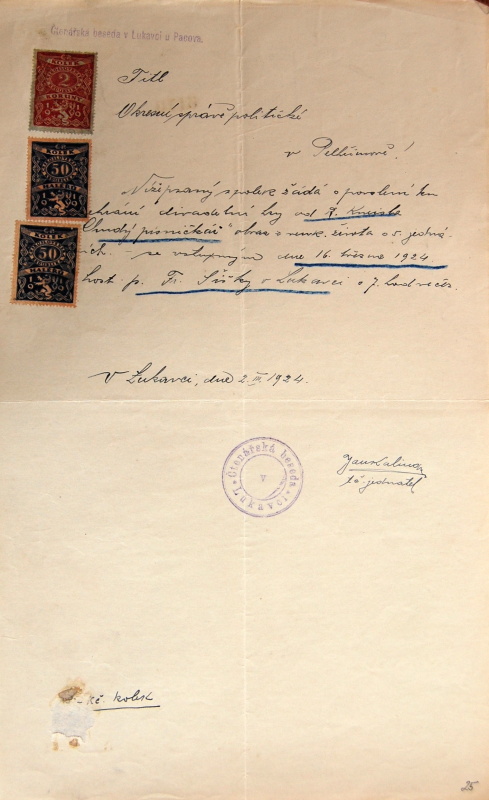 Čtenářská beseda v Lukavci u Pacova.
KOLEK
2
KORUNY
1919
KOLEK
50
HALÉŘŮ
KOLEK
50
HALÉŘŮ
Titl
Okresní správě politické
v Pelhřimově!
Níže psaný spolek žádá o povolení ku
sehrání divadelní hry od
Chudý písničkář" obraz z života o 5. jedná-
ních. – se vstupným dne 16. března 1924
host. p. Fr. Síšky v Lukavci o 7. hod več.
V Lukavci, dne 2. III. 1924.
Čtenářská beseda
v
Lukavci
Jan Kalina
t. č. jednatel
Kč. kolek
25